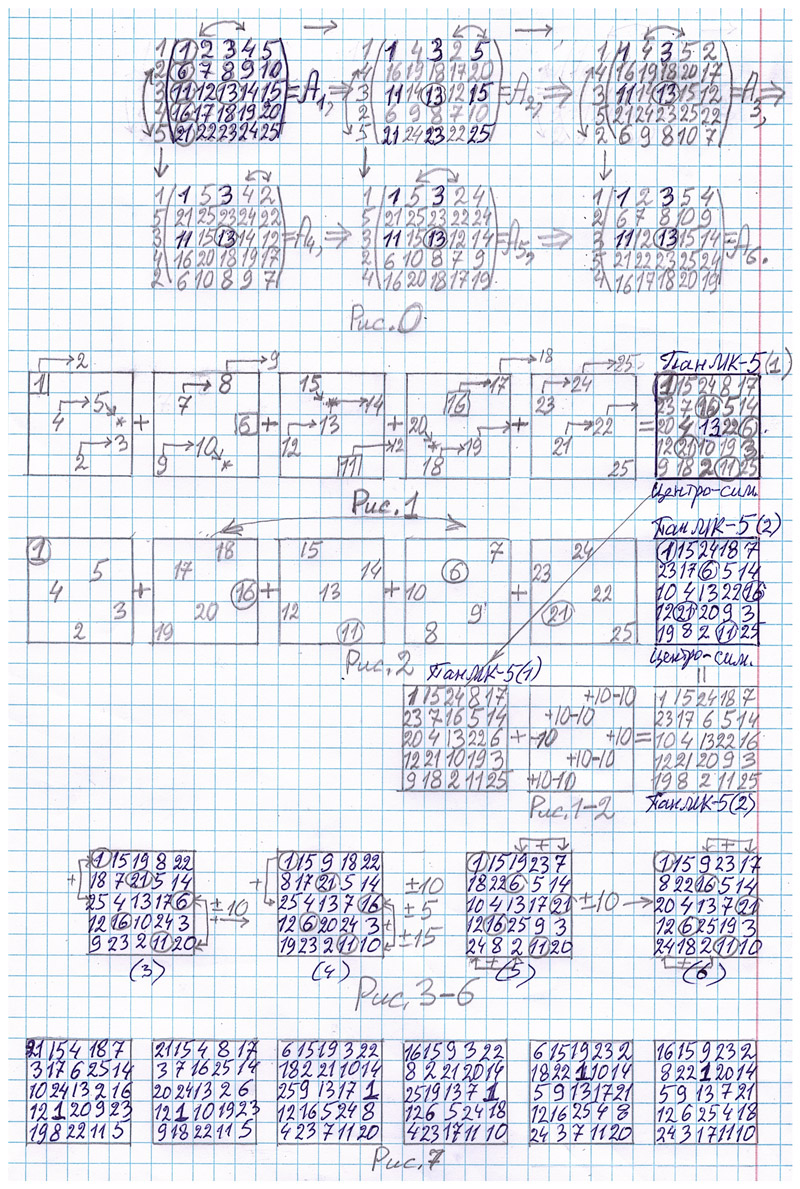 1 (1 2 3 4 5)
2 (6 7 8 9 10)
3 (11 12 13 14 15) = A1, ⇒
4 (16 17 18 19 20)
5 (21 22 23 24 25)
1 (1 4 3 2 5)
4 (16 19 18 17 20)
3 (11 14 13 12 15) = A2, ⇒
2 (6 9 8 7 10)
5 (21 24 23 22 25)
1 (1 4 3 5 2)
4 (16 19 18 20 17)
3 (11 14 13 15 12) = A3, ⇒
5 (21 24 23 25 22)
2 (6 9 8 10 7)
1 (1 5 3 4 2)
5 (21 25 23 24 22)
3 (11 15 13 14 12) = A4, ⇒
4 (16 20 18 19 17)
2 (6 10 8 9 7)
1 (1 5 3 2 4)
5 (21 25 23 22 24)
3 (11 15 13 12 14) = A5, ⇒
2 (6 10 8 7 9)
4 (16 20 18 17 19)
1 (1 2 3 5 4)
2 (6 7 8 10 9)
3 (11 12 13 15 14) = A6.
5 (21 22 23 25 24)
4 (16 17 18 20 19)
Рис.0
2
1
4 5 *
2 3
+
9
8
7
6
9 10 *
+
15
* 14
12 13
11 12
+
18
17
16
20 *
18 19
+
25
24
23
21 22
25
=
ПанМК-5(1)
1 15 24 8 17
23 7 16 5 14
20 4 13 22 6
12 21 10 19 3
9 18 2 11 25
Центро-сим.
Рис.1
1
5
4
3
2
+
18
17
16
20
19
+
15
14
13
12
11
+
7
6
10
9
8
+
24
23
22
21
25
ПанМК-5(2)
1 15 24 18 7
23 17 6 5 14
10 4 13 22 16
12 21 20 9 3
19 8 2 11 25
Центро-сим.
Рис.2
ПанМК-5(1)
1 15 24 8 17
23 7 16 5 14
20 4 13 22 6
12 21 10 19 3
9 18 2 11 25
+
+10-10
+10-10
-10 +10
+10-10
+10-10
=
1 15 24 18 7
23 17 6 5 14
10 4 13 22 16
12 21 20 9 3
19 8 2 11 25
Рис.1-2
ПанМК-5(2)
1 15 19 8 22
18 7 21 5 14
25 4 13 17 6
12 16 10 24 3
9 23 2 11 20
(3)
±10
1 15 9 18 22
8 17 21 5 14
25 4 13 7 16
12 6 20 24 3
19 23 2 11 10
(4)
±10
±5
±15
1 15 19 23 7
18 22 6 5 14
10 4 13 17 21
12 16 25 9 3
24 8 2 11 20
(5)
±10
1 15 9 23 17
8 22 16 5 14
20 4 13 7 21
12 6 25 19 3
24 18 2 11 10
(6)
Рис.3-6
21 15 4 18 7
3 17 6 25 14
10 24 13 2 16
12 1 20 9 23
19 8 22 11 5
21 15 4 8 17
3 7 16 25 14
20 24 13 2 6
12 1 10 19 23
9 18 22 11 5
6 15 19 3 22
18 2 21 10 14
25 9 13 17 1
12 16 5 24 8
4 23 7 11 20
16 15 9 3 22
8 2 21 20 14
25 19 13 7 1
12 6 5 24 18
4 23 17 11 10
6 15 19 23 2
18 22 1 10 14
5 9 13 17 21
12 16 25 4 8
24 3 7 11 20
16 15 9 23 2
8 22 1 20 14
5 19 13 7 21
12 6 25 4 18
24 3 17 11 10
Рис.7